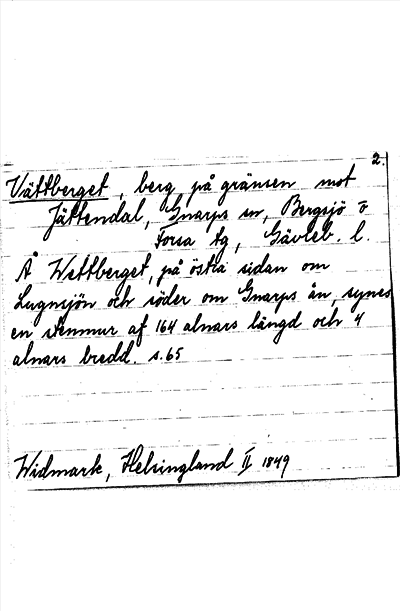 2.
Vättberget, berg på gränsen mot
Jättendal, Gnarps sn, Bergsjö o
Forsa tg, Gävleb. l.
Å Wettberget, på östra sidan om
Lugnsjön och söder om Gnarps ån, synes
en stenmur af 164 alnars längd och 4
alnars bredd. s. 65
Widmark, Helsingland II 1849